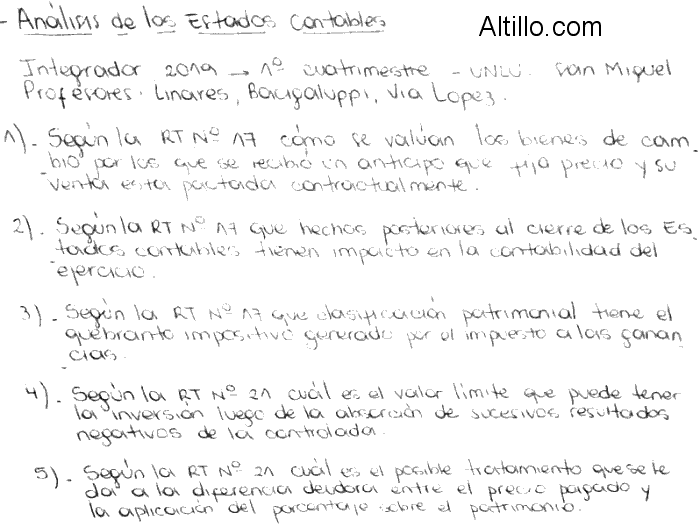 - Análisis de los Estados Contables
Altillo.com
Integrador 2019 → 1º cuatrimestre - UNLU. San Miguel
Profesores. Linares, Bacigaluppi, Via Lopez.
1). Según la RT Nº 17 cómo se valúan los bienes de cam.
bio por los que se recibió un anticipo que fija precio y su
venta esta pactada contractualmente.
2). Según la RT Nº 17 que hechos posteriores al cierre de los Es_
tados contables tienen impacto en la contabilidad del
ejercicio.
3). Según la RT Nº 17 que clasificación patrimonial tiene el
quebranto impositivo generado por el impuesto a las ganan
cias.
4). Según la RT Nº 21 cuál es el valor límite que puede tener
la inversión luego de la absorción de sucesivos resultados
negativos de la controlada.
5). Según la RT Nº 21 cuál es el posible tratamiento que se le
da a la diferencia deudora entre el precio pagado y
la aplicación del porcentaje sobre el patrimonio.